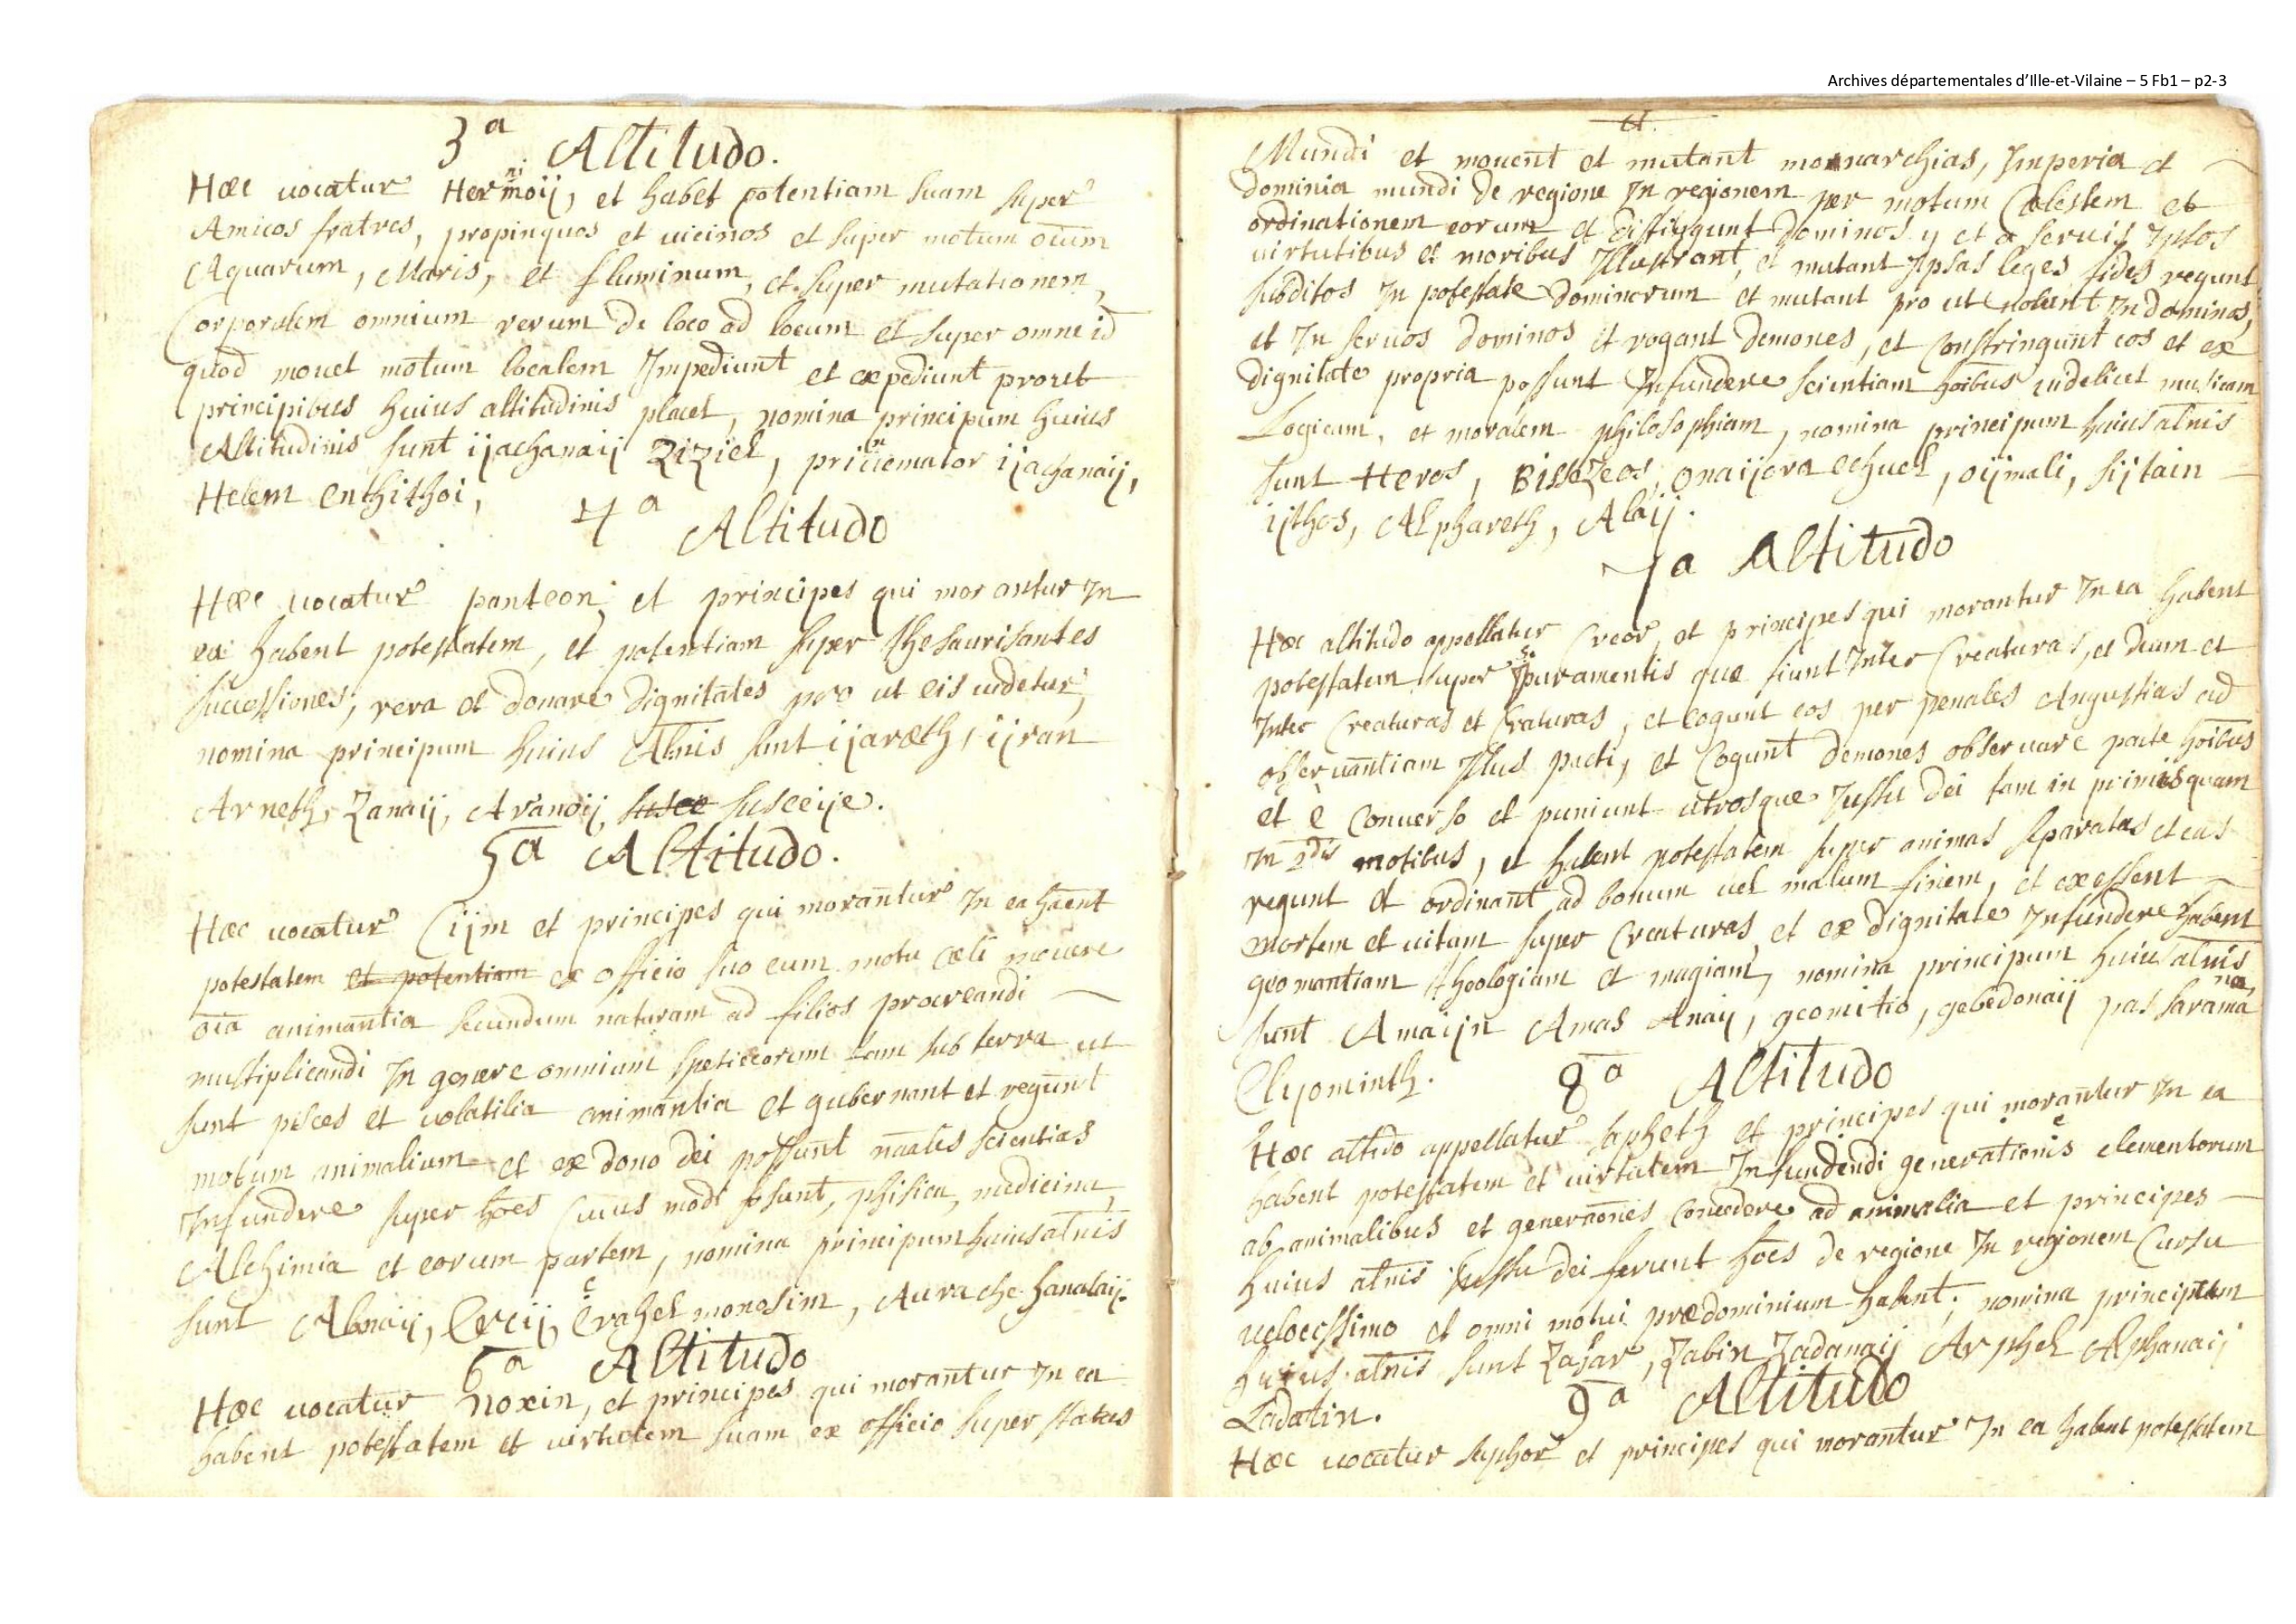 Archives départementales d'Ille-et-Vilaine – 5 Fb1 – p2-3
3a Altitudo.
Hæc uocatur Hermoij, et habet potentiam suam super
ni
Amicos fratres, propinquos et uicinos et super motum oium
Aquarum, Maris, et fluminum, et super mutationem,
Corporalem omnium rerum de loco ad locum et super omne id
quod mouet motum localem Impediunt et expediunt prout
principibus huius altitudinis placet, nomina principum huius
Altitudinis sunt ijachanaij ziziel, ijachanaij,
Helem Enthithoi,
4a Altitudo
Hæc uocatur panteon, et principes qui morantur In
ea habent potestatem, et potentiam super thesaurisantes
successiones, rera et donare dignitates pro ut eis uidetur,
nomina principum huius Altnis sunt ijaræth, ijran
Arneth, Zanaij, Aranoij, susce susceije.
5a Altitudo.
Hæc uocatur Cijm et principes qui morantur In ea haent
potestatem et potentiam ex officio suo cum motu cæli mouere
oia animantia secundum naturam ad filios procreandi
multiplicandi In genere omnium spetiecorum tam sub terra ut
sunt pisces et uolatilia animantia et gubernant et regunt
motum animalium et ex dono dei possunt naales scientias
Infundere super hoes Cuius modi sunt, phisica, medicina,
Alchimia et eorum partem, nomina principum huius atnis
sunt Abnaij, Cerij, Erahel monasim, Aurache hanalaij.
6a Altitudo
Hæc uocatur noxin, et principes qui morantur In ea
habent potestatem et uirtutem suam ex officio super status
Mundi et mouent et mutant monnarchias, Imperia et
dominia mundi de regione In regionem per motum Cælestem et
ordinationem eorum et distingunt Dominos y et a seruis Ipsos
uirtutibus et moribus Illustrant, et mutant Ipsas leges fides regunt
subditos In potestate Dominorum et mutant pro ut uolunt In dominos,
et In seruos dominos et rogant demones, et Constringunt eos et ex
dignitate propria possunt Infundere scientiam hoibus uidelicet musicam
Logicam, et moralem philosophiam, nomina principum huius atnis
sunt Heros, Bissozeos, onaijora echuel, oijmali, sijtain
ijthos, Alphareth, Alaij.
7a Altitudo
Hæc altitudo appellatur Creor, et principes qui morantur In ea habent
potestatem super Juramentis quæ fiunt Inter Creaturas, et deum et
Inter Creaturas et Craturas, et cogunt eos per penales Angustias ad
obseruantiam Illius pacti, et Cogunt demones obseruare pacte hoibus
et è Conuerso et puniunt utrosque Jussu dei tam in primis quam
In 2dis motibus, et habent potestatem super animas separatas et eas
regunt et ordinant ad bonum uel malum finem, et exessent
mortem et uitam super Creaturas et ex dignitate Infundere habent
geomantiam theologiam et magiam, nomina principum huius atnis
sunt Amaijn Amas Anaij, geomitio, gebedonaij passarama
na,
Elyominth.
8a Altitudo
Hæc altdo appellatur sapheth et principes qui morantur In ea
habent potestatem et uirtutem Infundendi generationis elementorum
ab animalibus et generaones Concedere ad animalia et principes
huius atnis Jussu dei ferunt hoes de regione In regionem Cursu
uelocissimo et omni motui prædominium habent; nomina principum
huius atnis sunt Zasar, Zabin Zadanaij Arphel Alphanaij
Ladatin.
9a Altitudo
Hæc uocatur suphor et principes qui morantur In ea habent potestatem